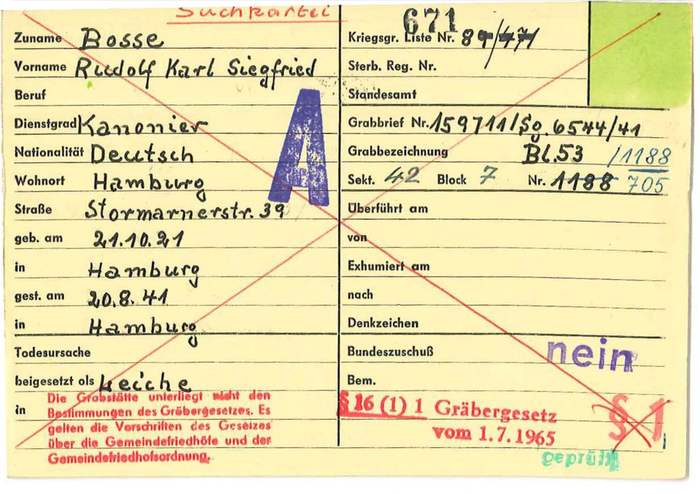 Suchkartei
671
Zuname Bosse
Vorname Rudolf Karl Siegfried
Beruf
Dienstgrad Kanonier
Nationalität Deutsch
Wohnort Hamburg
Straße Stormarnerstr. 39
geb. am 21.10.21
in Hamburg
gest. am 20.8.41
in Hamburg
Todesursache
beigesetzt als Leiche
in
Die Grabstätte unterliegt nicht den
Bestimmungen des Gräbergesetzes. Es
gelten die Vorschriften des Gesetzes
über die Gemeindefriedhöfe und der
Gemeindefriedhofsordnung.
A
Kriegsgr. Liste Nr.
Sterb. Reg. Nr.
Standesamt
Grabbrief Nr. 159711/So 6544/41
Grabbezeichnung Bl. 53 /1188
Sekt. 42 Block 7 Nr. 1188 705
Überführt am
von
Exhumiert am
nach
Denkzeichen
Bundeszuschuß nein
Bem.
§ 16 (1) 1 Gräbergesetz
vom 1.7.1965
§ 1
geprüft